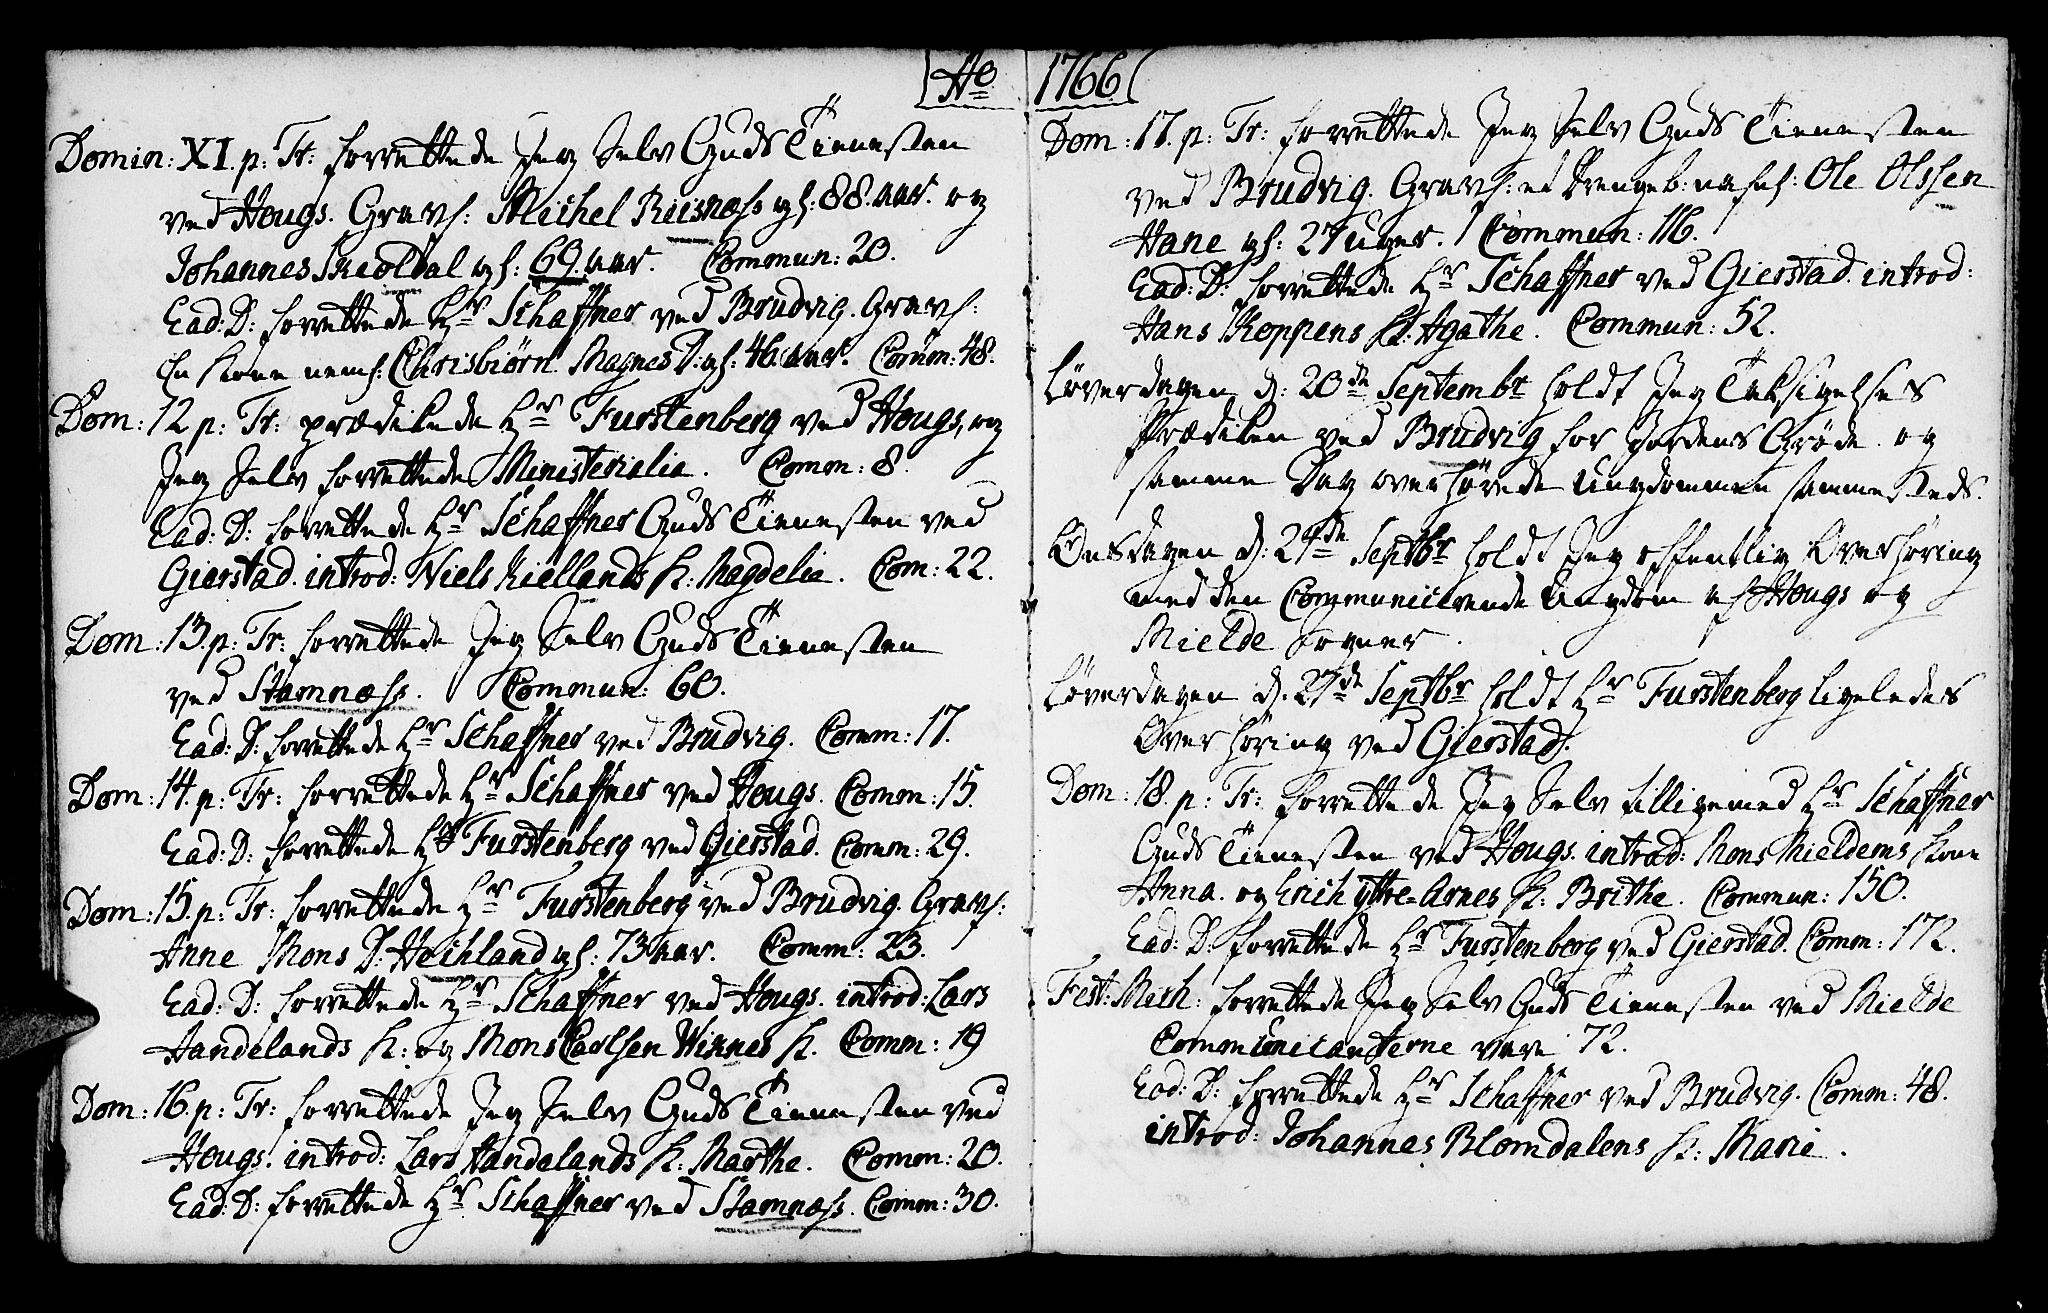 Ao 1766
Domin: XI. p: Tr: forrettede Jeg Selv Guds Tienesten
ved Hougs. Gravf: Michel Riisnæss gl: 88. aar. og
Johannes Skeoldal gl: 69. aar. Commun: 20.
Ead: D: forrettede Hr Schaffner ved Brudvig. Gravf:
En Kone nemf: Chrisbiørn Magnes D: gl: 46. aar. Comm: 48.
Dom: 12 p: Tr: prædikede Hr Furstenberg ved Hougs, og
Jeg Selv forrettede Ministerialia. Comm: 8.
Ead: D: forrettede Hr Schaffner Guds Tienesten ved
Gierstad. introd: Niels Kiellands K: Magdelia. Com: 22.
Dom: 13. p: Tr: forrettede Jeg Selv Guds Tienesten
ved Stamnæss. Commun: 60.
Ead: D: forrettede Hr Schaffner ved Brudvig. Comm: 17.
Dom: 14. p: Tr: forrettede Hr Schaffner ved Hougs. Comm: 15.
Ead: D: forrettede Hr Furstenberg ved Gierstad. Comm: 29.
Dom: 15. p: Tr: forrettede Hr Furstenberg ved Brudvig. Gravf:
Anne Mons D: Hechland gl: 73 aar. Comm: 23.
Ead: D: forrettede Hr Schaffner ved Hougs. introd: Lars
Handelands K: og Mons Carlsen Wixnes K. Comm: 19
Dom: 16. p: Tr: forrettede Jeg Selv Guds Tienesten ved
Hougs. introd: Lars Handelands K: Marthe. Comm: 20.
Ead: D: forrettede Hr Schaffner ved Stamnæss. Comm: 30.
Dom: 17. p: Tr: forrettede Jeg Selv Guds Tienesten
ved Brudvig. Gravf: et Drengeb: nafnl: Ole Olssen
Hane gl: 27 uger. Commun: 116.
Ead: D: forrettede Hr Schaffner ved Gierstad. introd:
Hans Koppens K: Agathe. Commun: 52.
Løverdagen d: 20de Septembr holdt Jeg Taksigelses
Prædiken ved Brudvig for Jordens Grøde. og
samme Dag overhørede Ungdommen sammesteds.
Onsdagen d: 24de Septbr holdt Jeg offentlig Overhøring
med den Communicerende Ungdom af Hougs og
Mielde Sogner.
Løverdagen d. 27de Septbr holdt Hr Furstenberg ligeledes
Overhøring ved Gierstad.
Dom: 18. p: Tr: forrettede Jeg Selv tilligemed Hr Schaffner
Guds Tienesten ved Hougs. introd: Mons Mieldems Kone
Anna. og Erich ytre-Arnes K: Brithe. Commun: 150.
Ead: D: forrettede Hr Furstenberg ved Gierstad. Comm: 172.
Fest: Mich: forrettede Jeg Selv Guds Tienesten ved Mielde
Communicanterne vare 72.
Eod: D: forrettede Hr Schaffner ved Brudvig. Comm: 48.
introd: Johannes Blomdalens K: Marie.